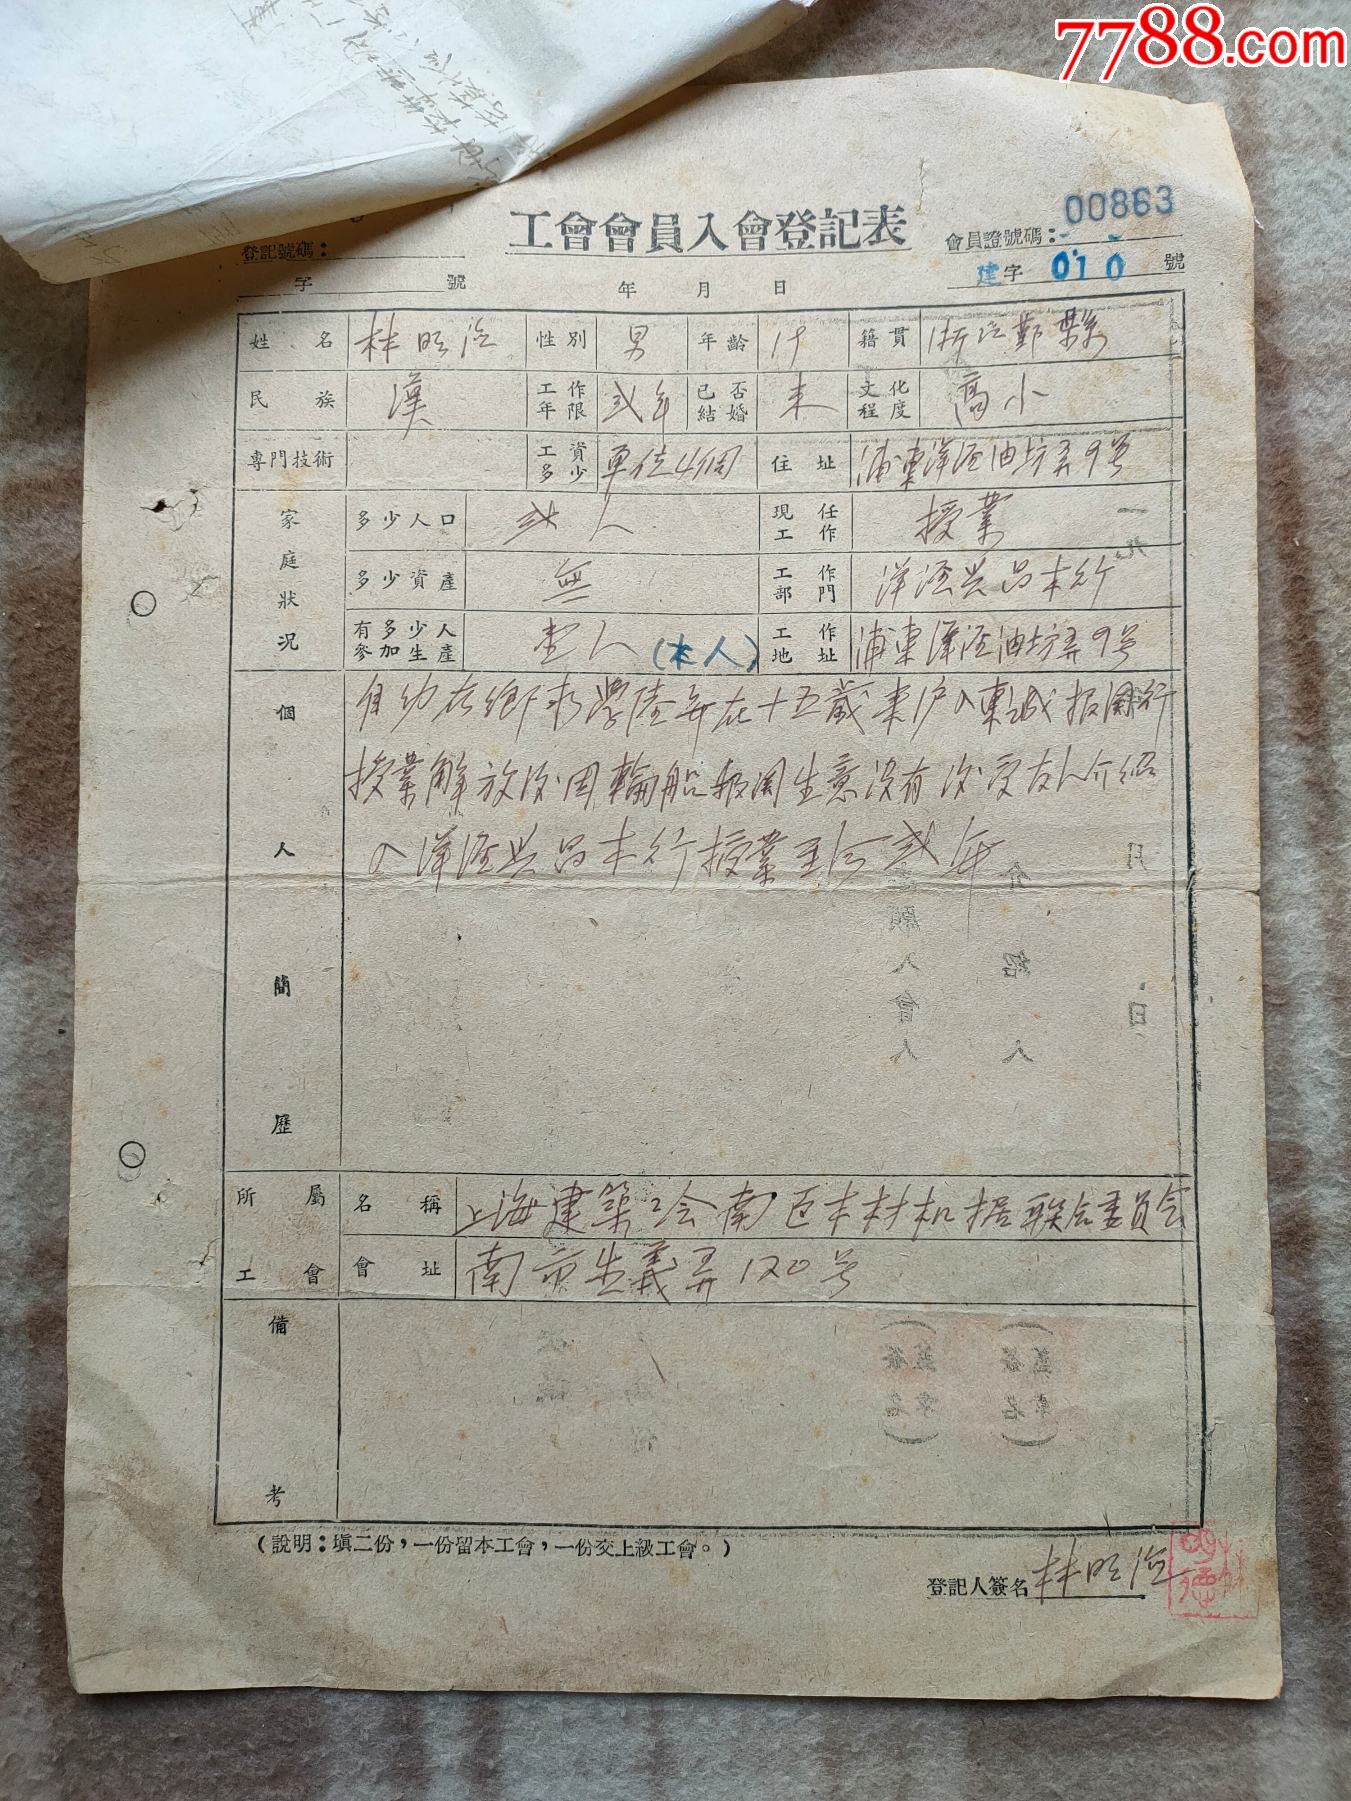 7788.com
工會會員入會登記表
00863
登記號碼：
會員證號碼：
字 號
年 月 日
建字 010 號
姓名 林明 性別 男 年齡 19 籍貫 浙江鄞縣
民族 漢 工作年限 弍年 已否結婚 未 文化程度 高小
專門技術 工資多少 單位4個 住址 浦東洋涇油坊弄9号
家庭狀況 多少人口 弍人 現任工作 授業
多少資產 無 工作部門 洋涇 昌木行
有多少人參加生產 壹人(本人) 工作地址 浦東洋涇油坊弄9号
個人簡歷
自幼在鄉求學陸年在十五歲來沪入東 报関行
授業解放后因輪船报関生意没有 后受友人介绍
入洋涇 昌木行授業至今弍年
所屬工會 名稱 上海建築工会南区木材机 联合委員会
會址 南市生義弄120号
備考
(說明：填二份，一份留本工會，一份交上級工會。)
登記人簽名 林明